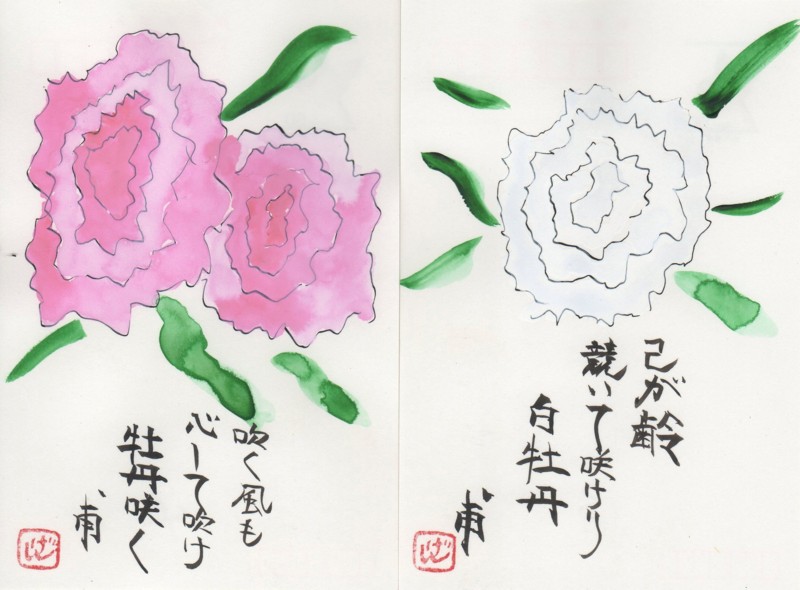 吹く風も
心して吹け
牡丹咲く
甫
己が齢
競いて咲けり
白牡丹
甫